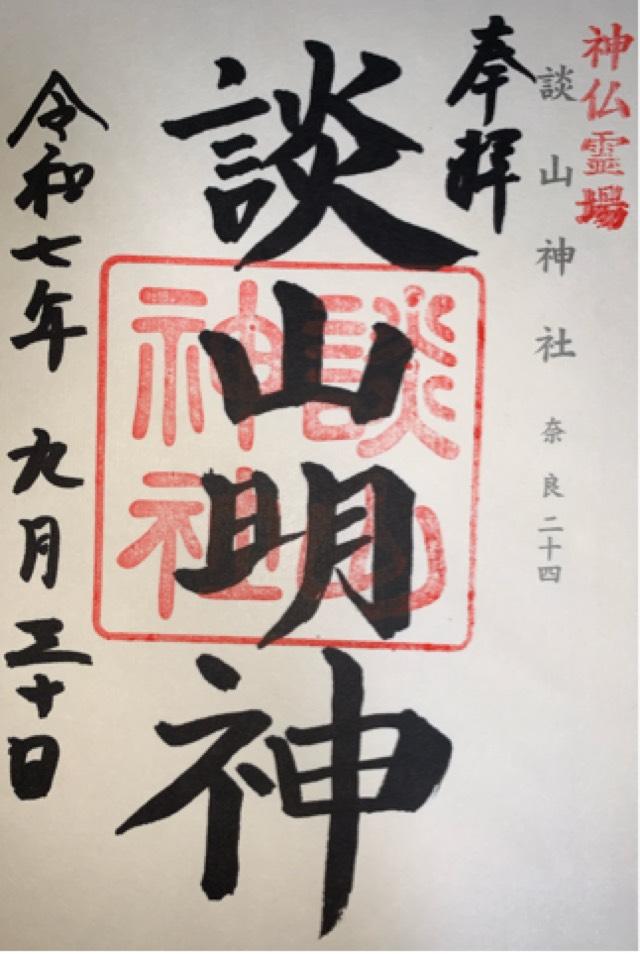 神仏霊場
談山神社 奈良二十四
奉拝
談山明神
談山神社
令和七年 九月三十日